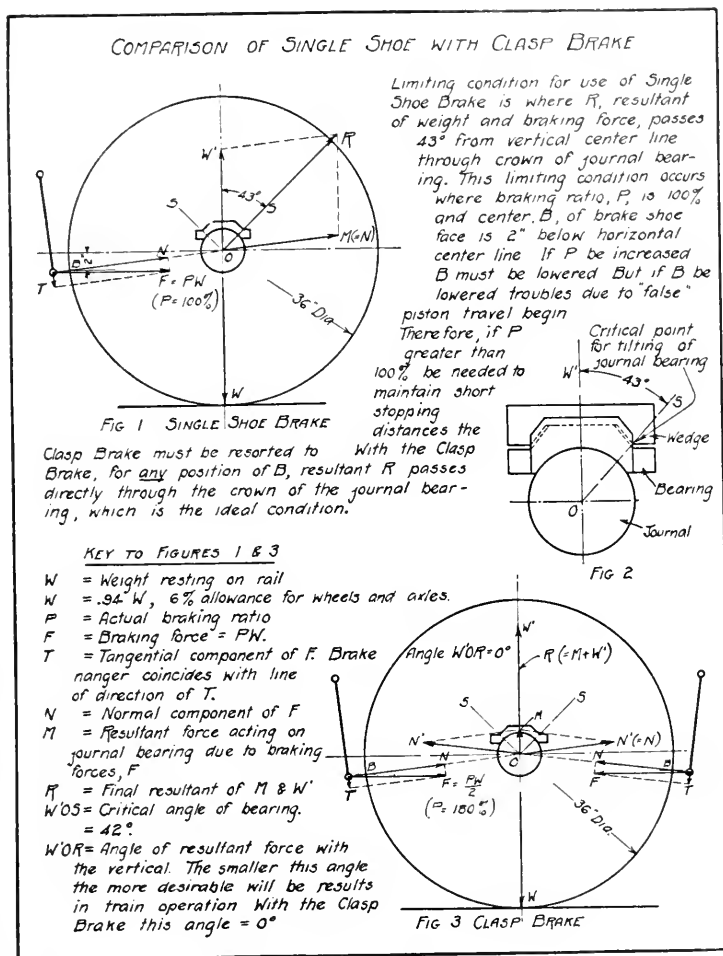 COMPARISON OF SINGLE SHOE WITH CLASP BRAKE
Limiting condition for use of Single
Shoe Brake is where R, resultant
of weight and braking force, passes
43° from vertical center line
through crown of journal bear-
ing. This limiting condition occurs
where braking ratio, P, is 100%
and center, B, of brake shoe
face is 2" below horizontal
center line If P be increased
B must be lowered But if B be
lowered troubles due to "false"
piston travel begin
Therefore, if P
greater than
100% be needed to
maintain short
stopping
distances the
Clasp Brake must be resorted to With the Clasp
Brake, for any position of B, resultant R passes
directly through the crown of the journal bear-
ing, which is the ideal condition.
W'
R
43°
S
S
M(=N)
O
N
B
2"
T
F = PW
(P=100%)
36" Dia.
W
FIG 1 SINGLE SHOE BRAKE
Critical point
for tilting of
journal bearing
W'
43°
S
Wedge
Bearing
O
Journal
FIG 2
KEY TO FIGURES 1 & 3
W = Weight resting on rail
W = .94 W, 6% allowance for wheels and axles.
P = Actual braking ratio
F = Braking force = PW.
T = Tangential component of F. Brake
nanger coincides with line
of direction of T.
N = Normal component of F
M = Resultant force acting on
journal bearing due to braking
forces, F
R = Final resultant of M & W'
W'OS= Critical angle of bearing.
= 42°.
W'OR= Angle of resultant force with
the vertical. The smaller this angle
the more desirable will be results
in train operation With the Clasp
Brake this angle = 0°
W'
Angle W'OR=0°
R (=M+W')
S
M
S
N'
N'(=N)
O
N
N
B
B
T
T
F = PW/2
F
(P=150%)
36" Dia.
W
FIG 3 CLASP BRAKE